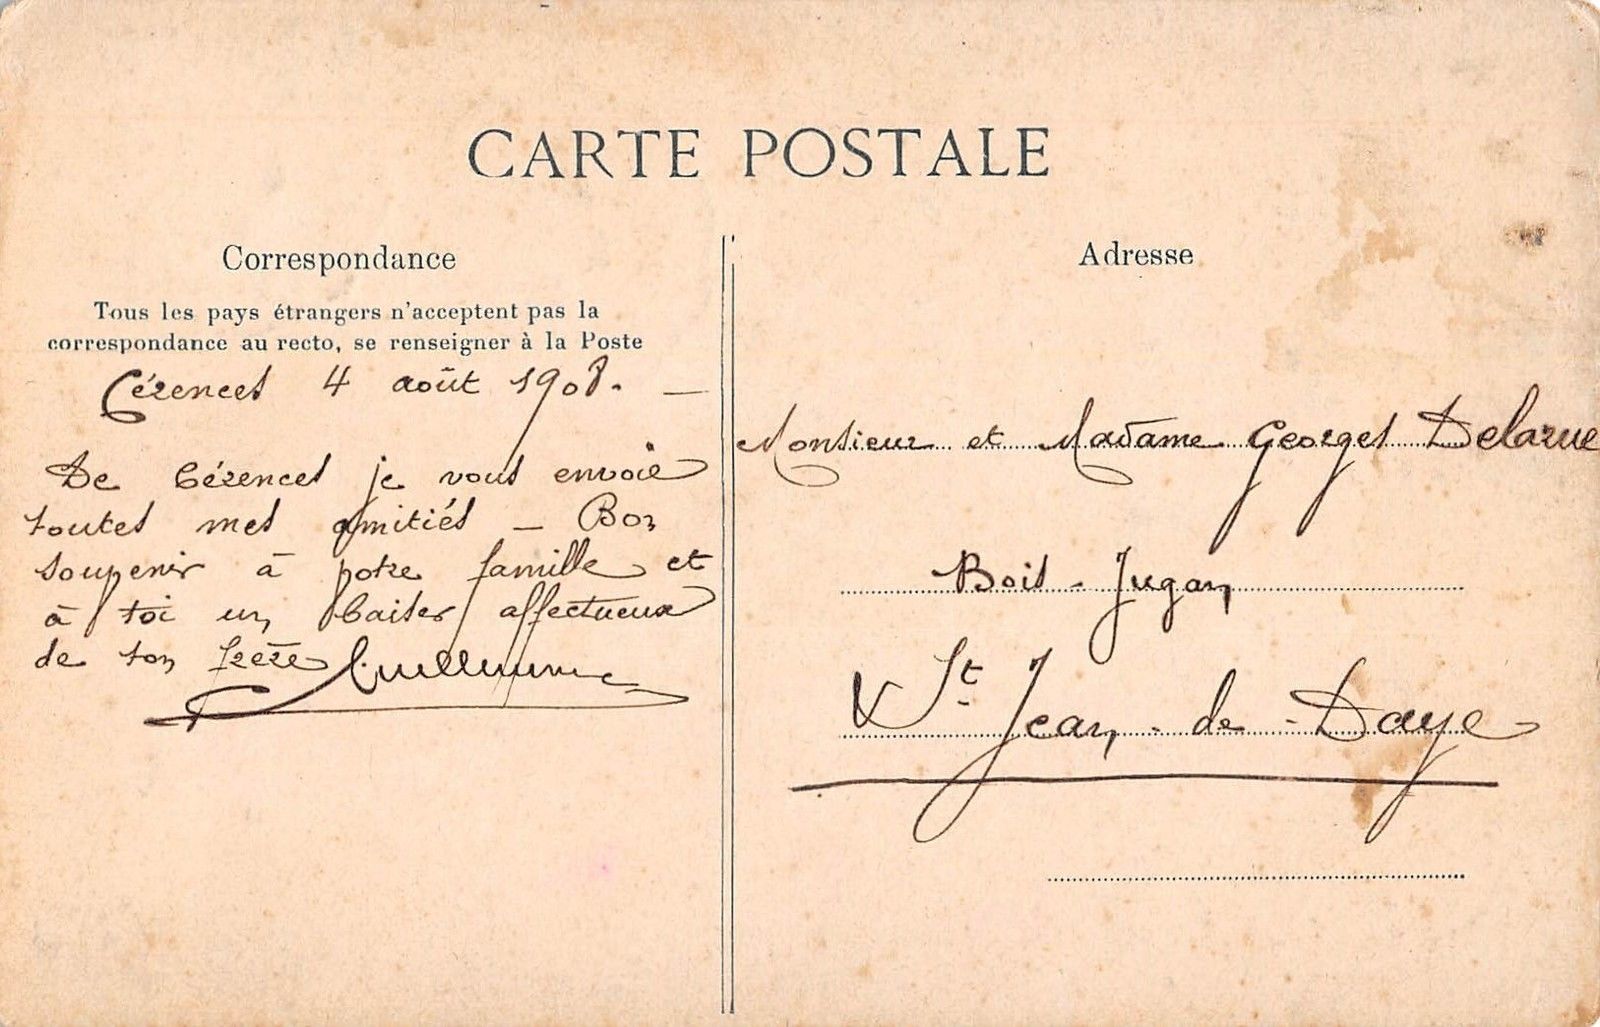 CARTE POSTALE
Correspondance
Tous les pays étrangers n'acceptent pas la
correspondance au recto, se renseigner à la Poste
Cérences 4 août 1908. —
De Cérences je vous envoie
toutes mes amitiés — Bon
souvenir à votre famille et
à toi un baiser affectueux
de ton frère Guillaume
Adresse
Monsieur et Madame Georges Delarue
Bois-Jugan
St Jean-de-Daye